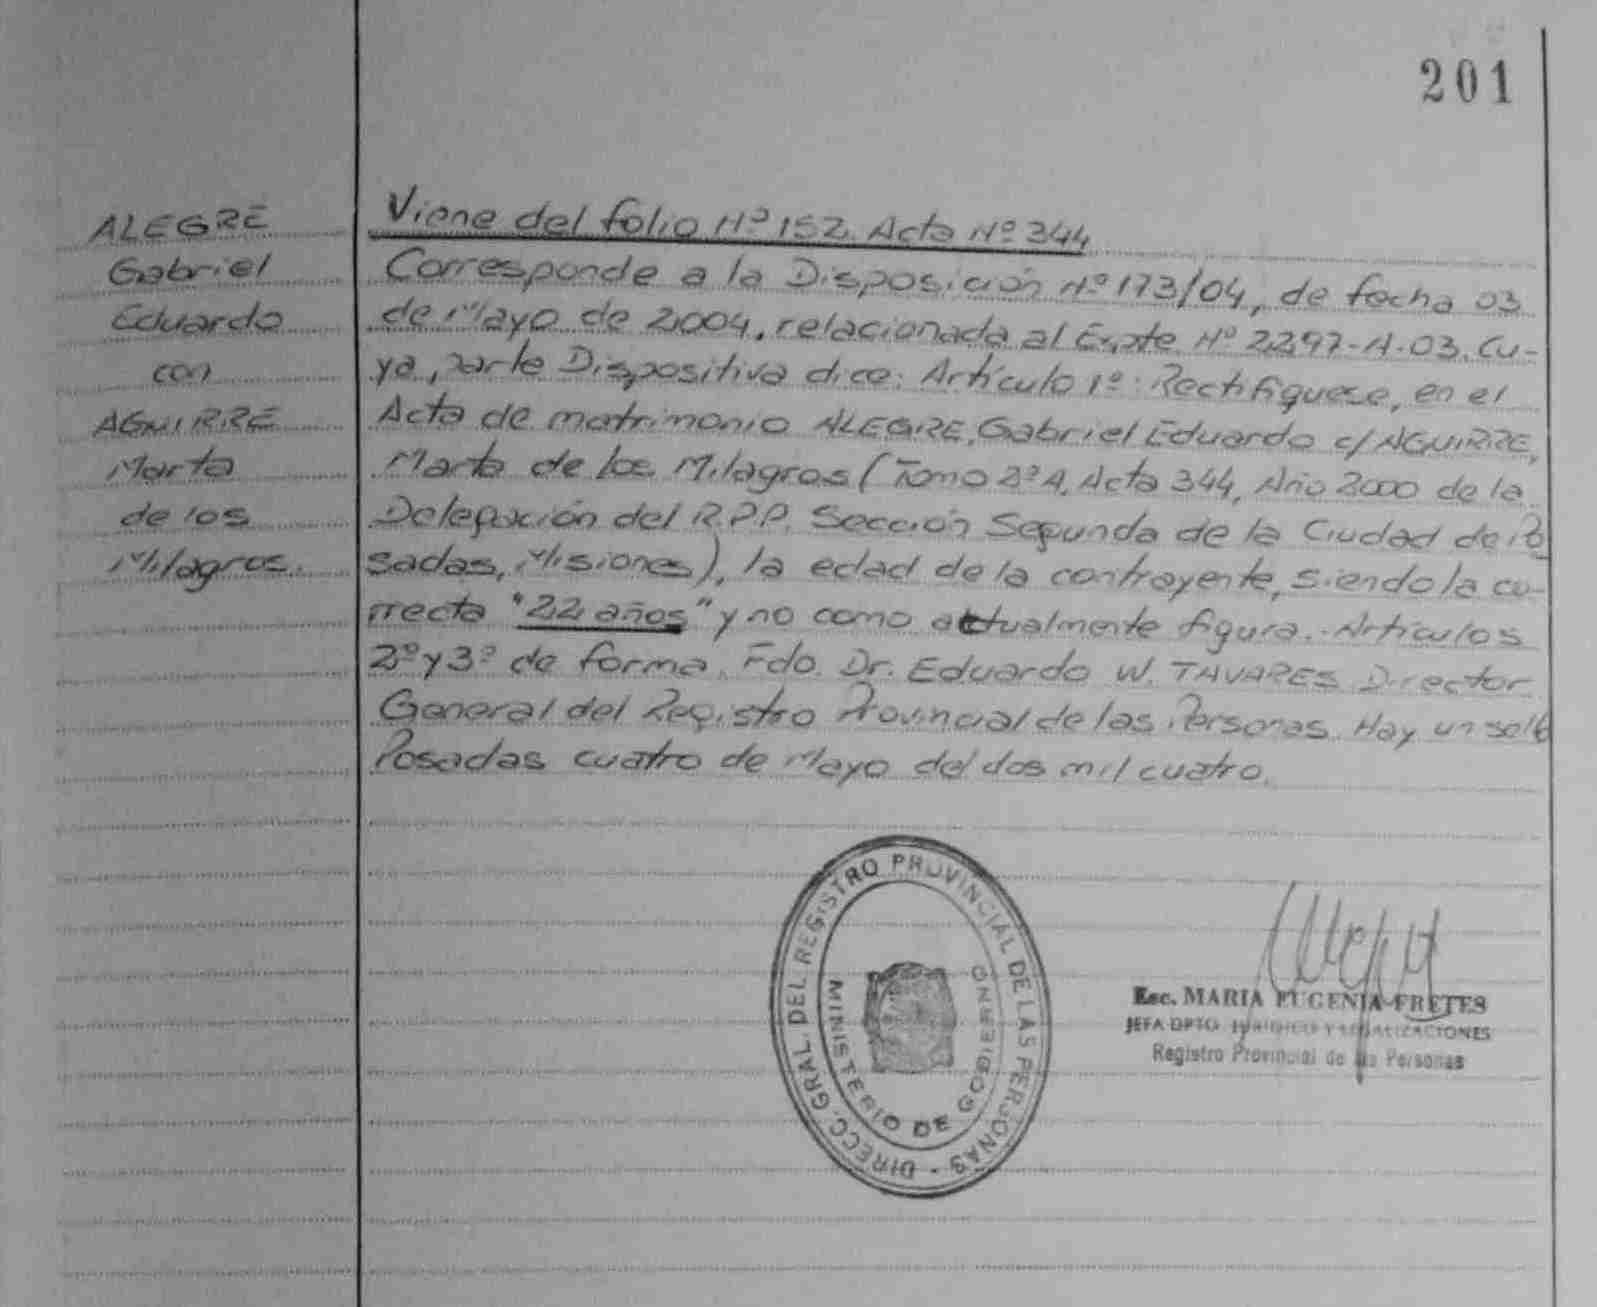 201
ALEGRE
Gabriel
Eduardo
con
AGUIRRE
Marta
de los
Milagros.
Viene del folio Nº 152. Acta Nº 344
Corresponde a la Disposición Nº 173/04, de fecha 03
de Mayo de 2004, relacionada al Expte Nº 2297-A-03. Cu-
ya parte Dispositiva dice: Artículo 1º: Rectifíquese, en el
Acta de matrimonio ALEGRE, Gabriel Eduardo c/ AGUIRRE,
Marta de los Milagros (Tomo 2º A, Acta 344, Año 2000 de la
Delegación del R.P.P. Sección Segunda de la Ciudad de Po
sadas, Misiones), la edad de la contrayente, siendo la co-
rrecta "22 años" y no como actualmente figura.- Artículos
2º y 3º de forma. Fdo. Dr. Eduardo W. TAVARES Director
General del Registro Provincial de las Personas. Hay un sello
Posadas cuatro de Mayo del dos mil cuatro.
DIRECC. GRAL. DEL REGISTRO PROVINCIAL DE LAS PERSONAS -
MINISTERIO DE GOBIERNO
Esc. MARIA EUGENIA FRETES
JEFA DPTO. JURIDICO Y LEGALIZACIONES
Registro Provincial de las Personas